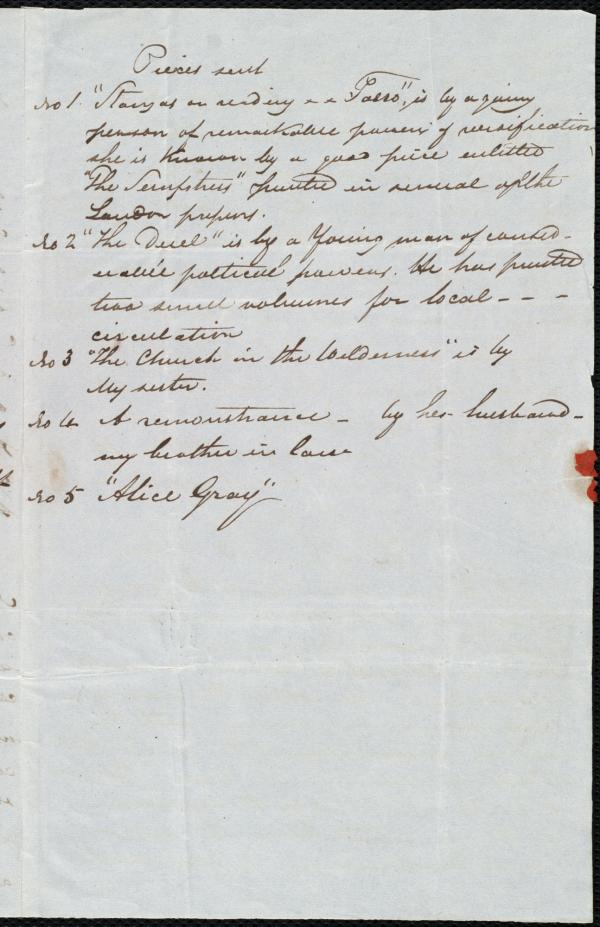 Pieces sent
No 1. "Stanzas on reading - - Tasso", is by a young
person of remarkable powers of versification
she is known by a good piece entitled
"The Sempstress" printed in several of the
London papers.
No 2 "The Duel" is by a young man of consid-
erable poetical powers. He has printed
two small volumes for local - - -
circulation
No 3 "The Church in the Wilderness" is by
My sister.
No 4 A remonstrance - by her husband -
my brother in law
No 5 "Alice Gray"